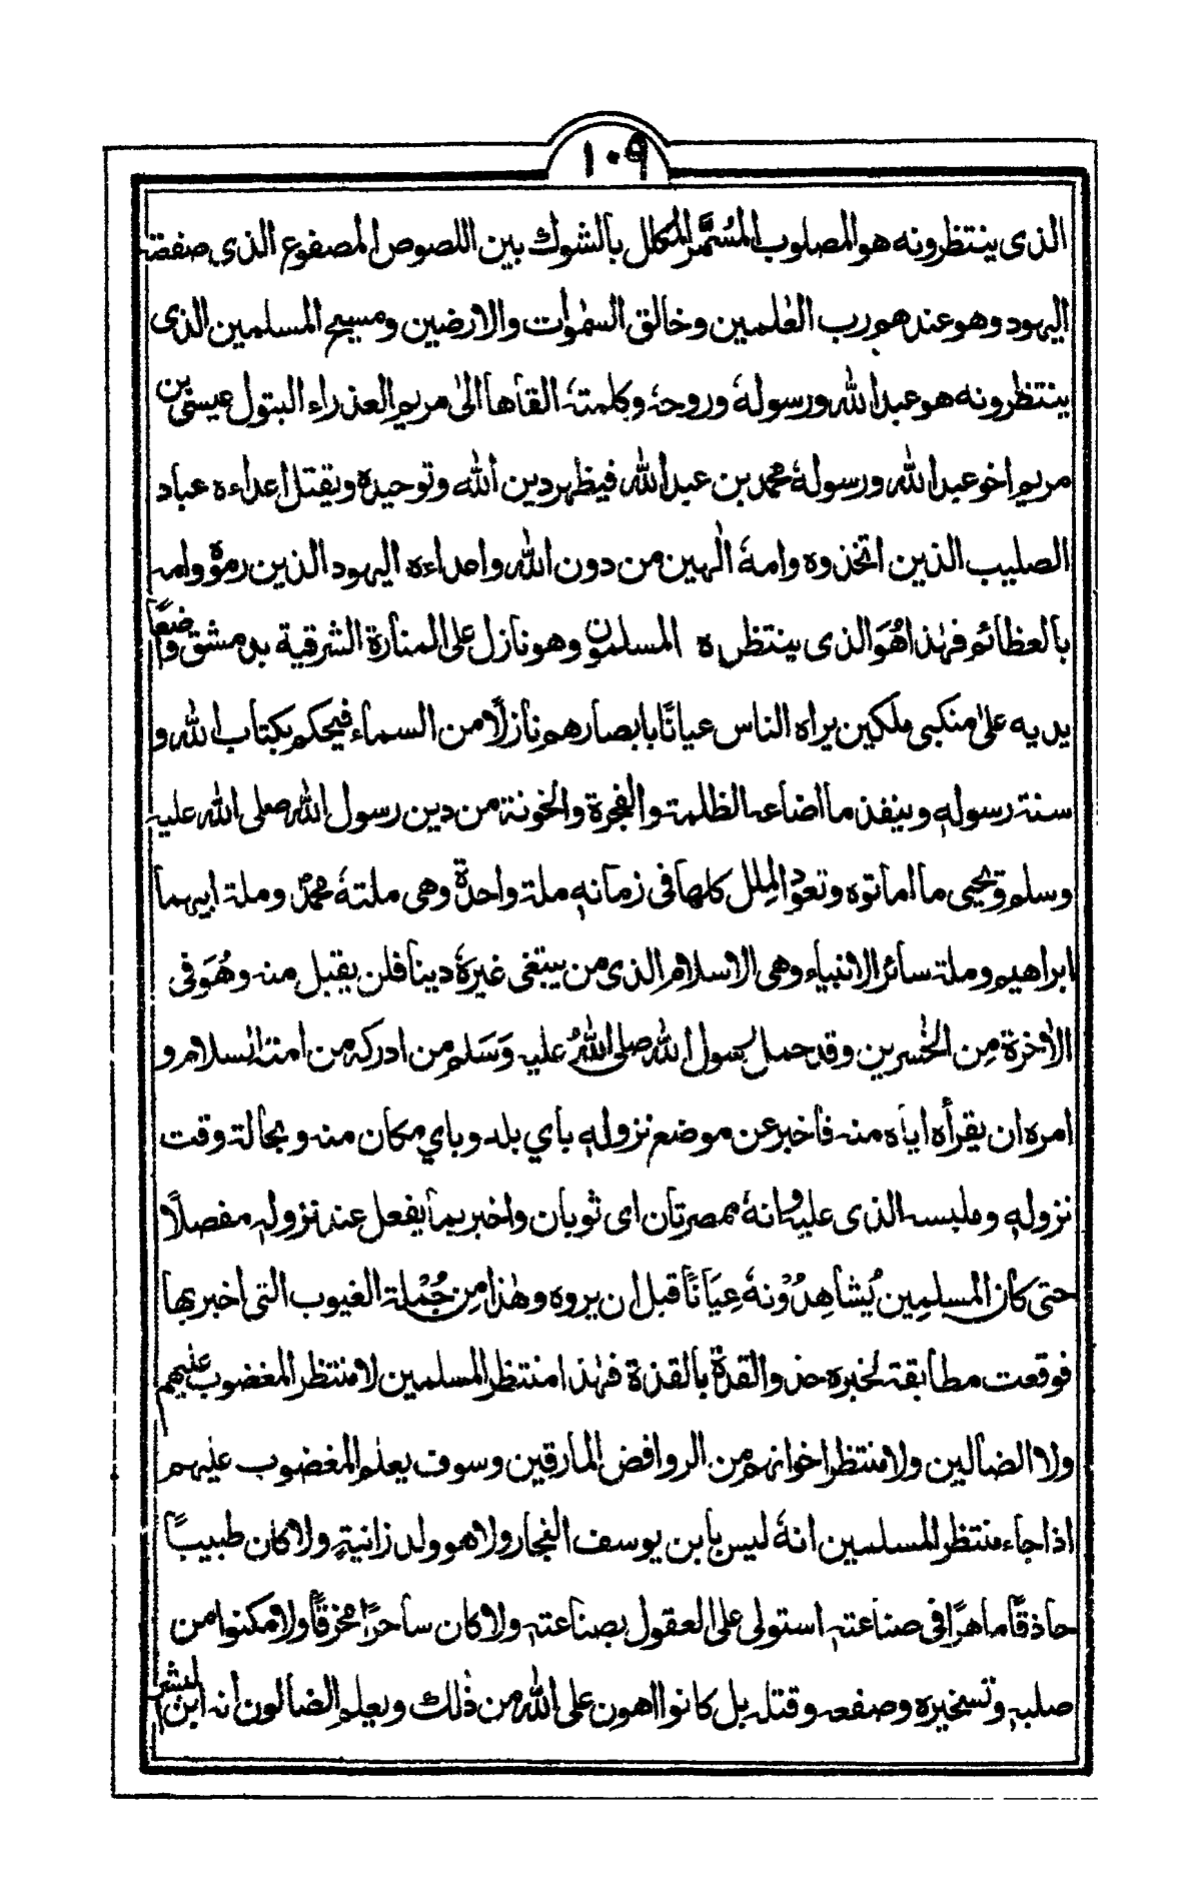 ١٠٩
الذى ينتظرونه هو المصلوب المُسَمَّر المكلل بالشوك بين اللصوص المصفوع الذى صفعته
اليهود وهو عندهم رب العٰلمين وخالق السمٰوات والارضين ومسيح المسلمين الذى
ينتظرونه هو عبد الله ورسولهٗ وروحهٗ وكلمتهٗ القاها الىٰ مريم العذراء البتول عيسى بن
مريم اخو عبد الله ورسولهٗ محمد بن عبد الله فيظهر دين الله وتوحيده ويقتل اعداءه عباد
الصليب الذين اتخذوه وامهٗ الٰهين من دون الله واعداءه اليهود الذين رموه وامه
بالعظائم فهٰذا هُوَ الذى ينتظره المسلمون وهو نازل على المنارة الشرقية بدمشق واضعًا
يديه علىٰ منكبى ملكين يراه الناس عيانًا بابصارهم نازلًا من السماء فيحكم بكتاب الله و
سنة رسولهٖ وينفذ ما اضاعه الظلمة والفجرة والخونة من دين رسول الله صلى الله عليه
وسلم ويحيى ما اماتوه وتعود المِلل كلها فى زمانهٖ ملة واحدة وهى ملتهٗ محمدٍ وملة ابيهما
ابراهيم وملة سائر الانبياء وهى الاسلام الذى من يبتغى غيرهٗ دينا فلن يقبل منه وهُوَ فى
الاٰخرة مِن الخٰسرين وقد حمل رسول الله صلى اللهُ عليه وَسَلم من ادركه من امته السلام و
امره ان يقرأه اياه منه فاخبر عن موضع نزولهٖ باي بلد وباي مكان منه وبحالة وقت
نزولهٖ وملبسه الذى عليه وانهٗ ممصرتان اى ثوبان واخبر بما يفعل عند نزولهٖ مفصلًا
حتى كان المسلمين يُشاهِدُوْنهٗ عِيَانًا قبل ان يروه وهٰذا مِن جُمْلة الغيوب التى اخبر بها
فوقعت مطابقة لخبره حذو القذة بالقذة فهٰذا منتظر المسلمين لا منتظر المغضوب عليهم
ولا الضالين ولا منتظر اخوانهم من الروافض المارقين وسوف يعلم المغضوب عليهم
اذا جاء منتظر المسلمين انهٗ ليس بابن يوسف النجار ولا هو ولد زانيةٍ ولا كان طبيبًا
حاذقًا ماهرًا فى صناعتهٖ استولى على العقول بصناعتهٖ ولا كان ساحرًا مخرقًا ولا مكنوا من
صلبهٖ وتسخيره وصفعه وقتله بل كانوا اهون على الله من ذٰلك ويعلم الضالون انه ابن البشر